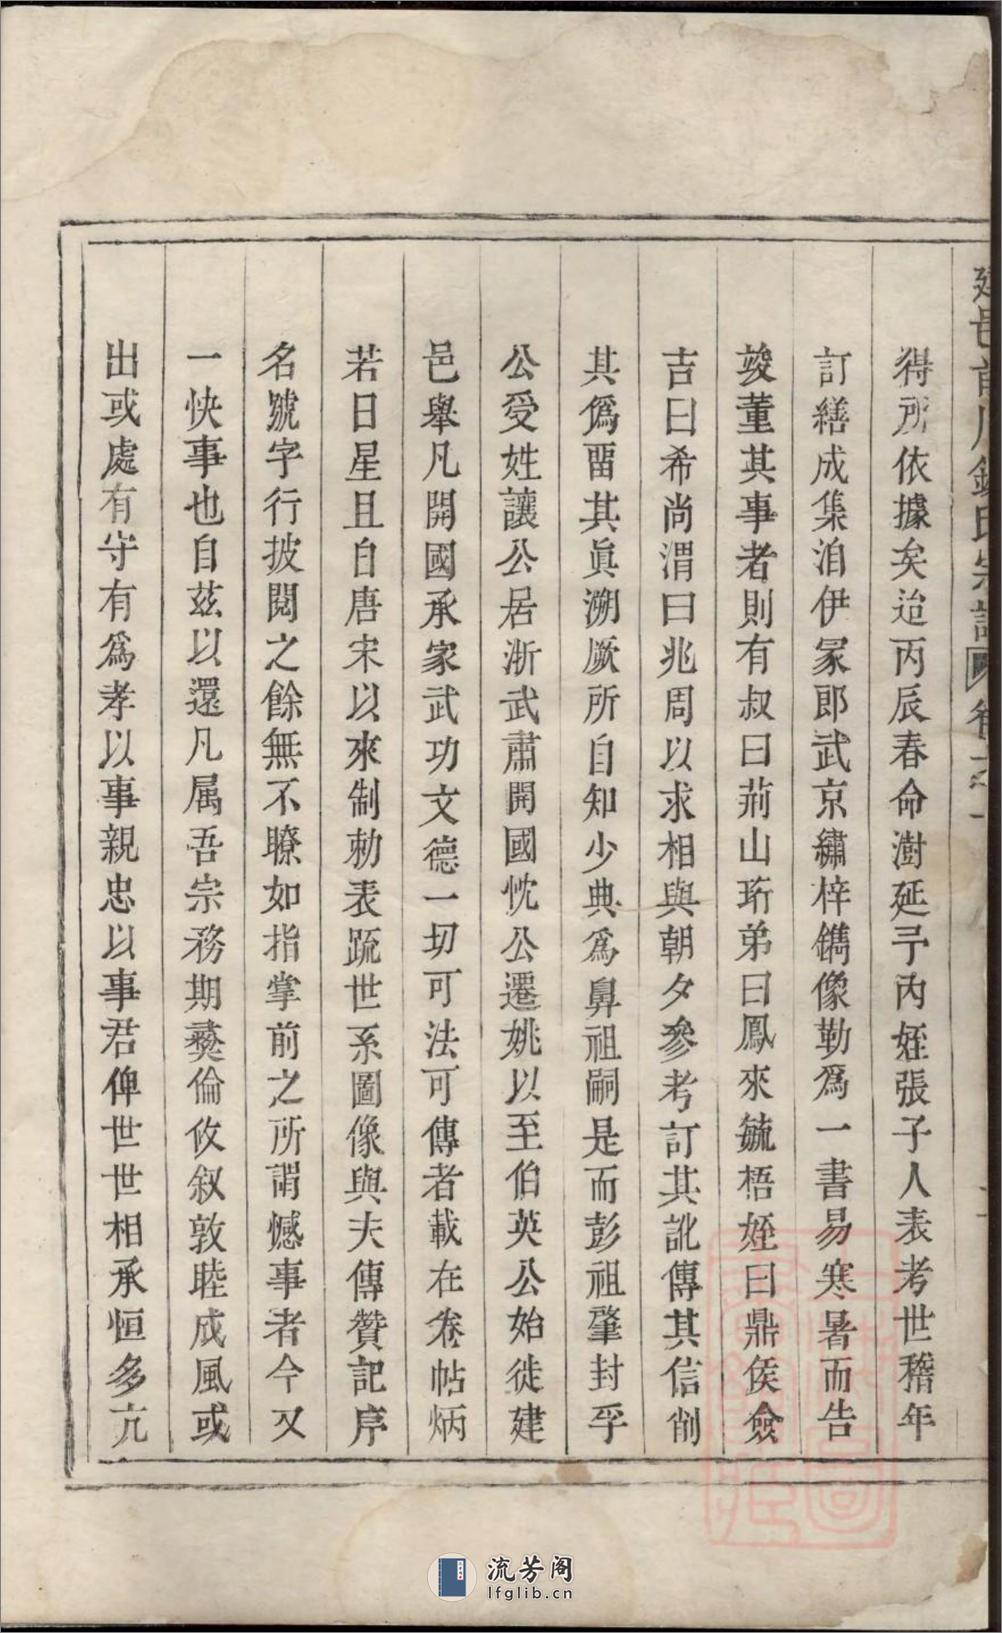 得所依據矣迨丙辰春命澍延予內姪張子人表考世稽年
訂繕成集洎伊冢郎武京繡梓鐫像勒爲一書易寒暑而告
竣董其事者則有叔曰荊山珩弟曰鳳來毓梧姪曰鼎侯僉
吉曰希尚渭曰兆周以求相與朝夕參考訂其訛傳其信削
其僞畱其眞溯厥所自知少典爲鼻祖嗣是而彭祖肇封孚
公受姓讓公居浙武肅開國忱公遷姚以至伯英公始徙建
邑舉凡開國承家武功文德一切可法可傳者載在卷帖炳
若日星且自唐宋以來制勅表䟽世系圖像與夫傳贊記序
名號字行披閱之餘無不瞭如指掌前之所謂憾事者今又
一快事也自茲以還凡属吾宗務期彝倫攸叙敦睦成風或
出或處有守有爲孝以事親忠以事君俾世世相承恒多亢
流芳阁
lfglib.cn